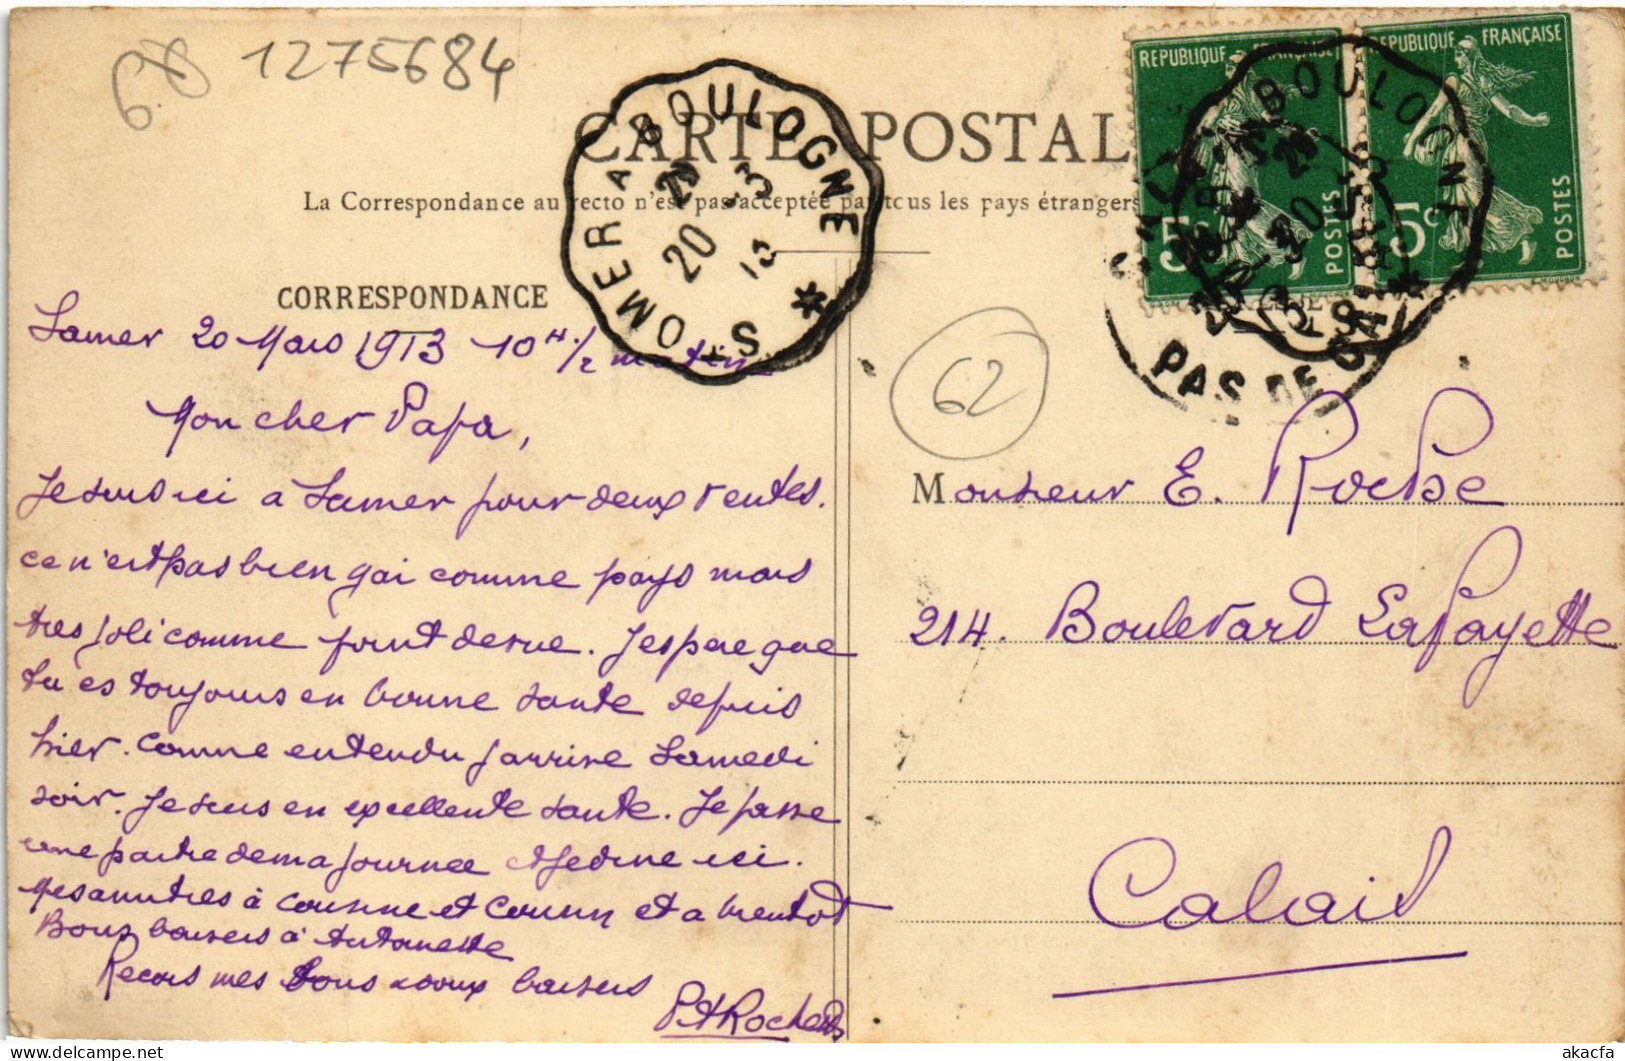 6.8 1275684
CARTE POSTALE
La Correspondance au recto n'est pas acceptée par tous les pays étrangers
CORRESPONDANCE
ST OMER A BOULOGNE
20 3
13
REPUBLIQUE FRANÇAISE
5c POSTES
REPUBLIQUE FRANÇAISE
5c POSTES
A BOULOGNE
PAS DE CALAIS
62
Samer 20 Mars 1913 10H 1/2 matin
Mon cher Papa,
Je suis ici a Samer pour deux ventes.
ce n'est pas bien gai comme pays mais
tres joli comme point de vue. J'espere que
tu es toujours en bonne sante depuis
hier. Comme entendu j'arrive Samedi
soir. Je suis en excellente sante. Je passe
une partie de ma journee et je dine ici.
Mes amities à cousine et cousin et a bientot
Bons baisers à Antoinette
Recois mes bons doux baisers
Monsieur E. Roche
214. Boulevard Lafayette
Calais
akacfa
delcampe.net